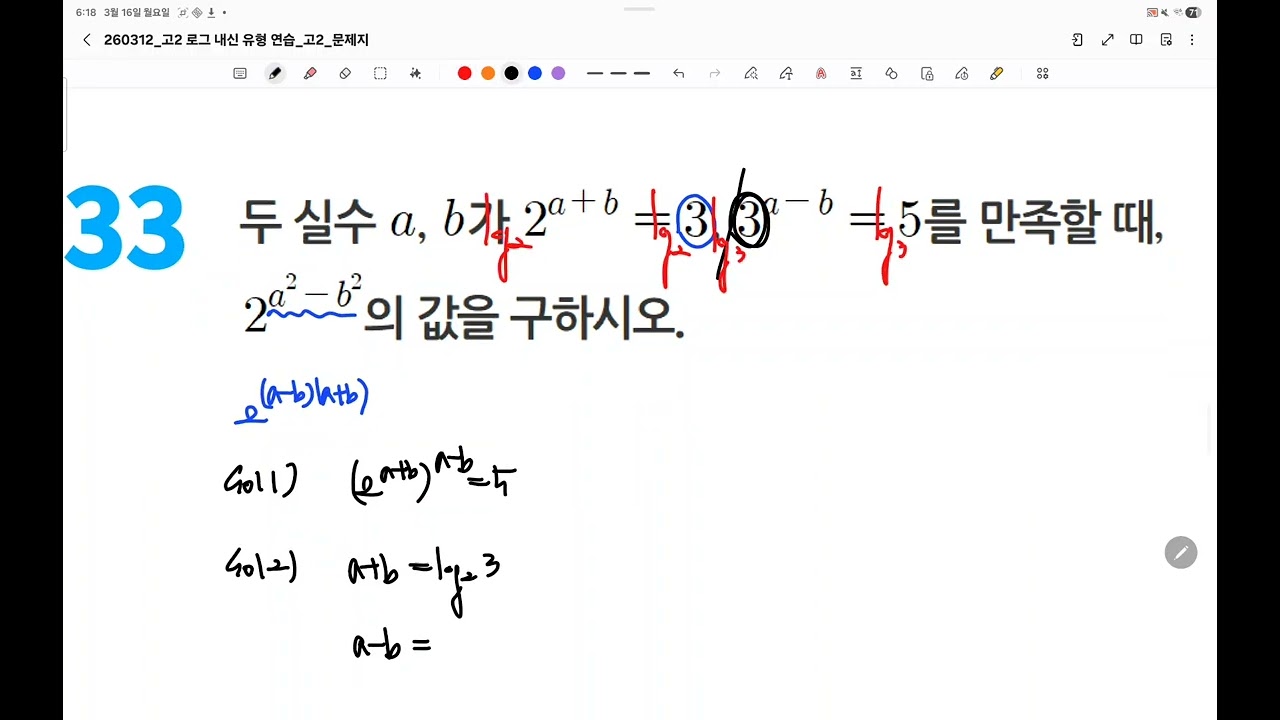 6:18 3월 16일 월요일
71
260312_고2 로그 내신 유형 연습_고2_문제지
33
두 실수 a, b가 2^{a+b} = 3, 3^{a-b} = 5를 만족할 때,
log_2 log_2 log_3 log_3
2^{a^2-b^2}의 값을 구하시오.
2^{(a-b)(a+b)}
sol1) (2^{a+b})^{a-b} = 5
sol2) a+b = log_2 3
a-b =